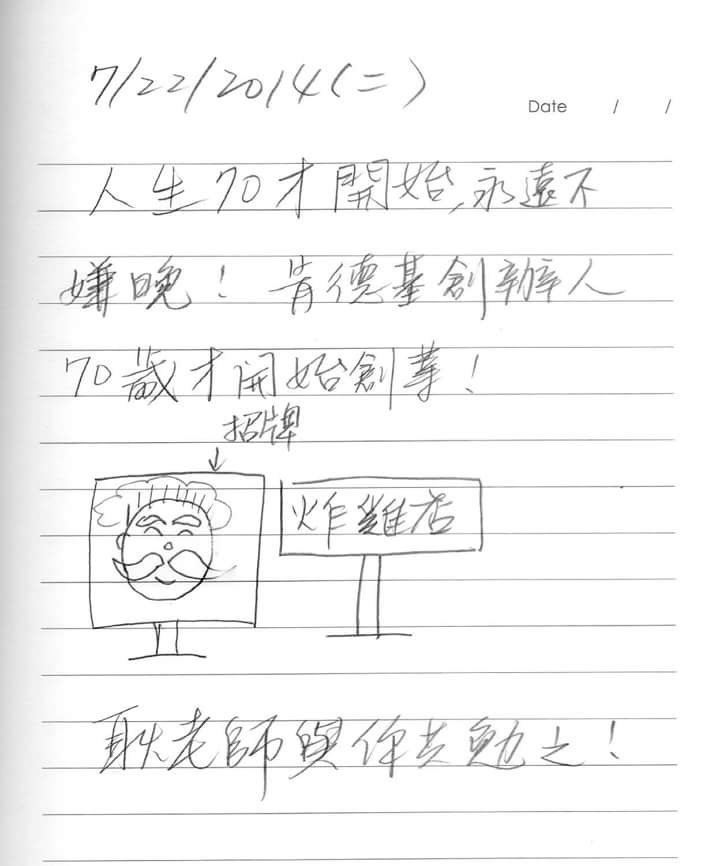 7/22/2014(二)
Date / /
人生70才開始,永遠不
嫌晚! 肯德基創辦人
70歲才開始創業!
招牌
炸雞店
耿老師與你共勉之!